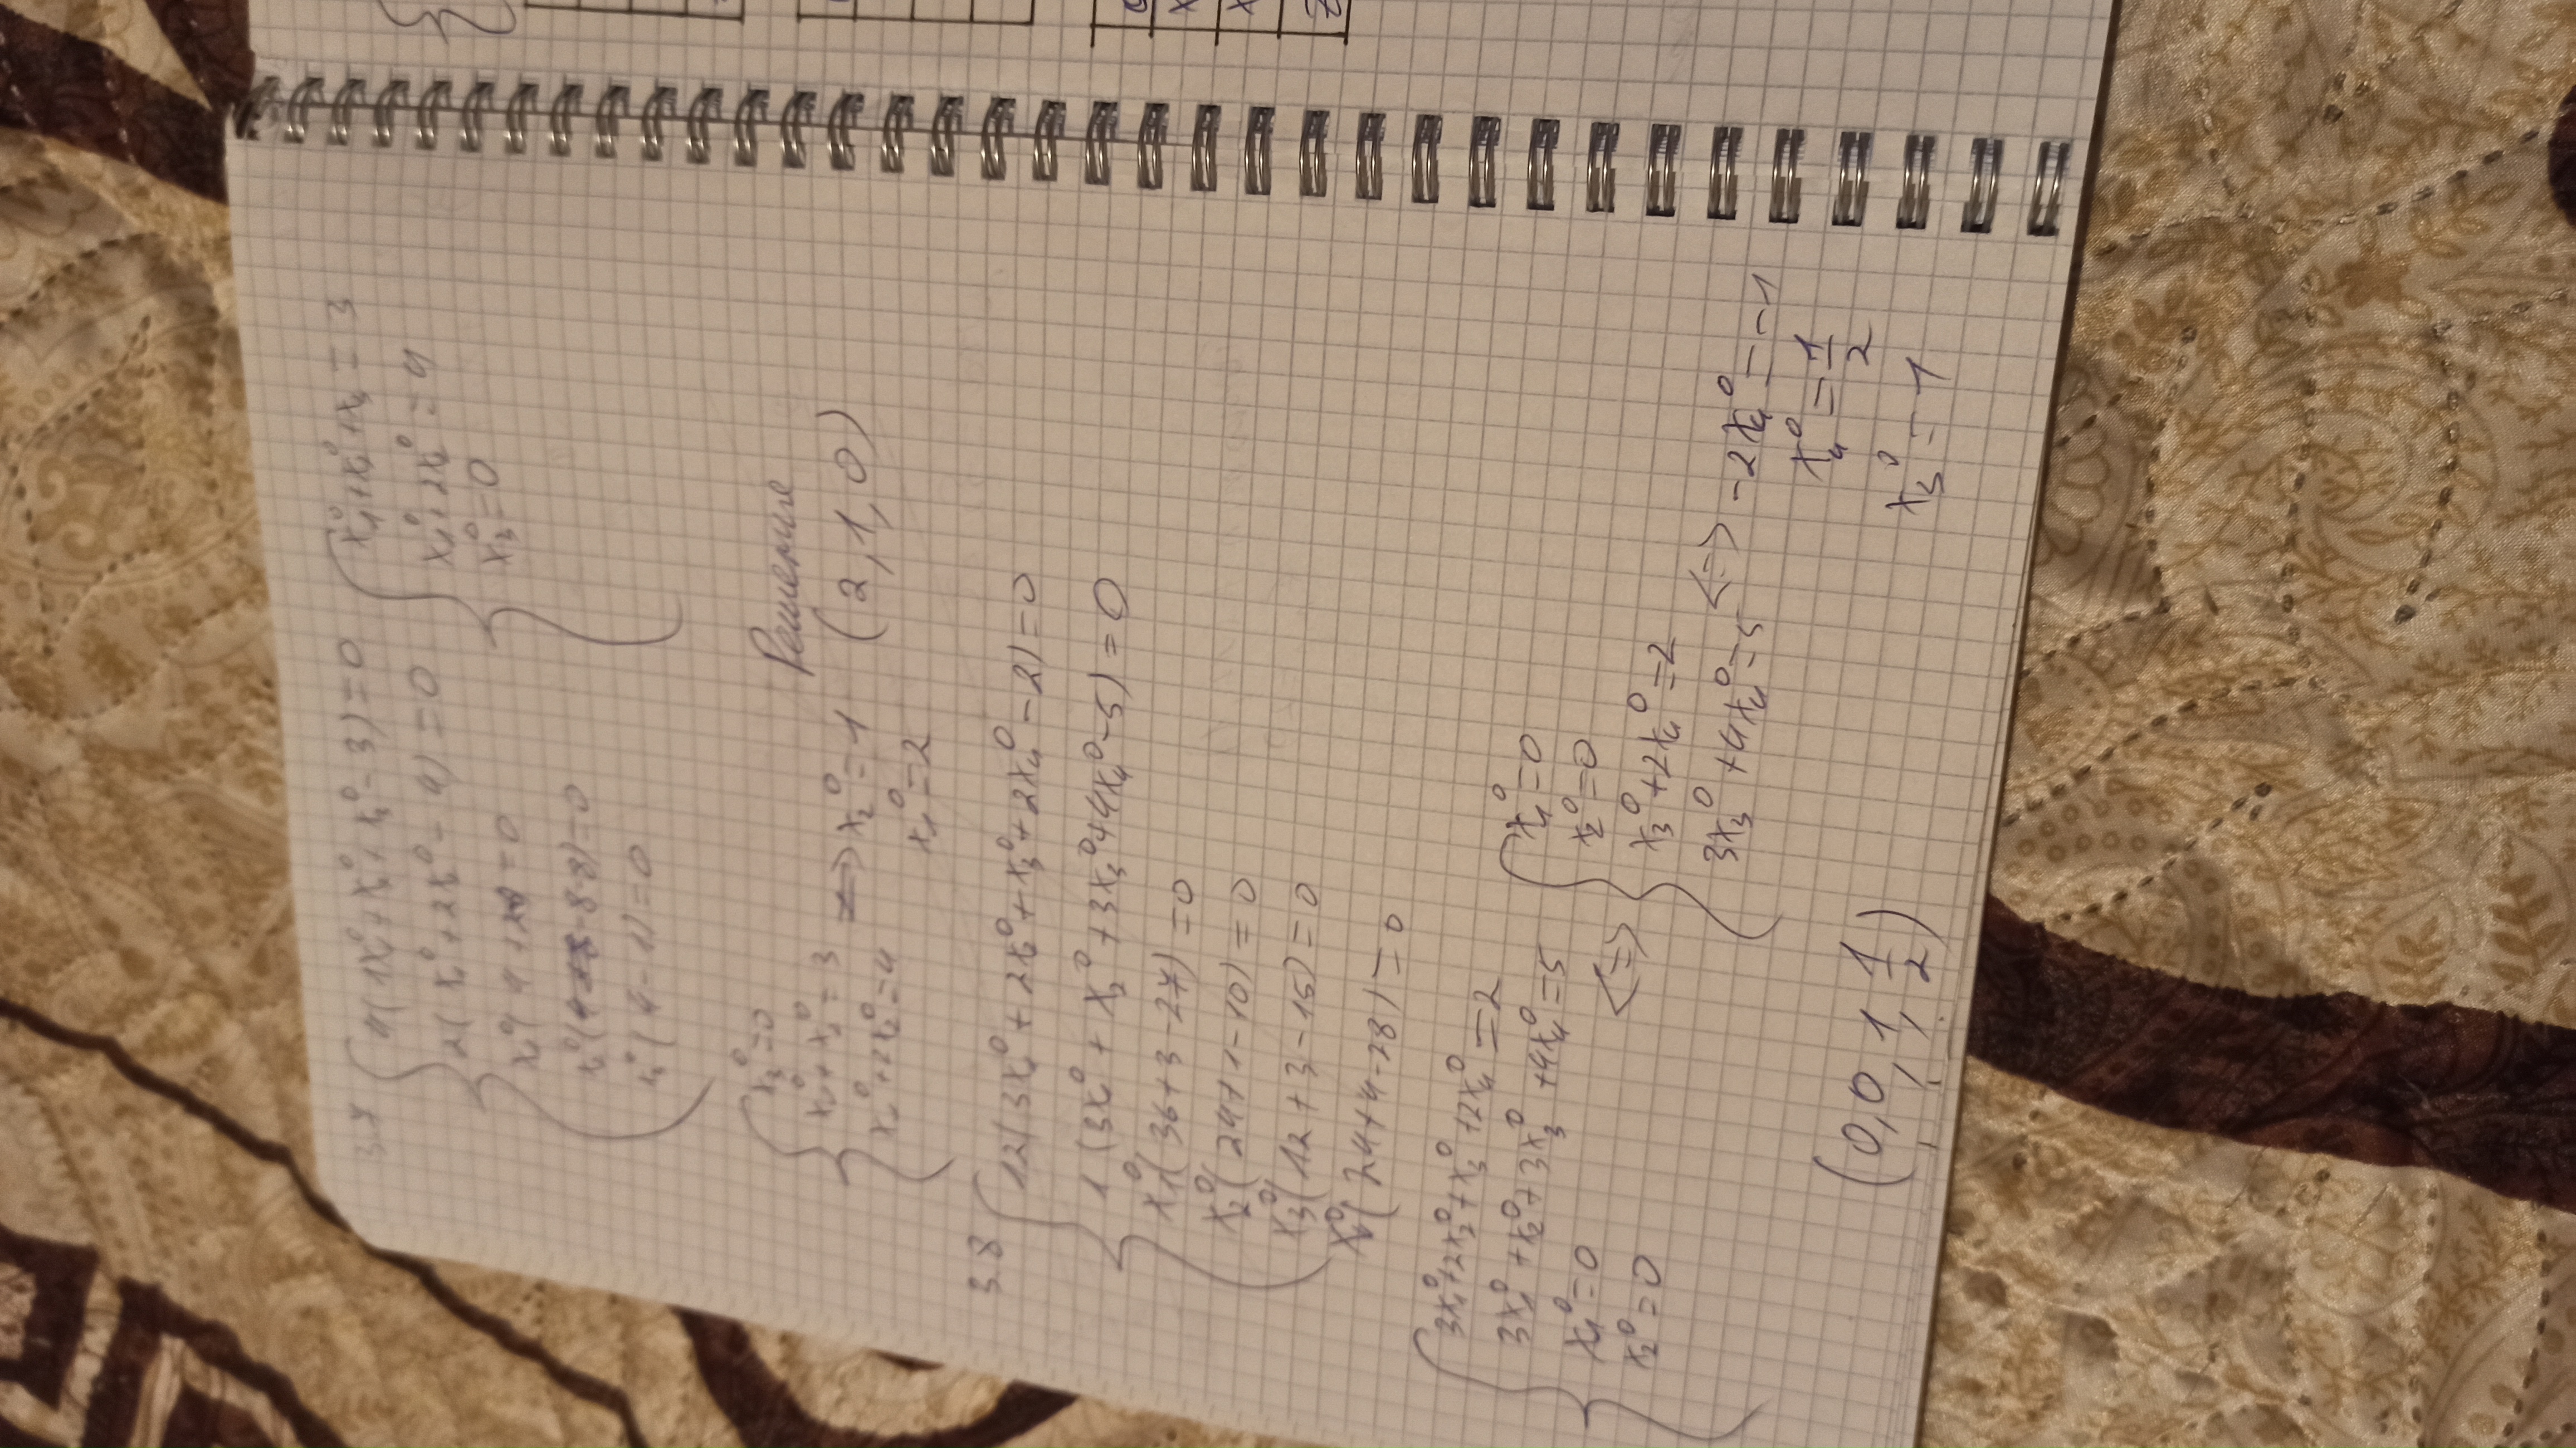 3.7
4(1x₁⁰+x₂⁰+x₃⁰-3)=0
2(x₁⁰+2x₂⁰-4)=0
=0
-8-8)=0
x₃⁰(4-1)=0
x₁⁰+x₂⁰+x₃=3
x₁⁰+2x₂⁰=4
x₃⁰=0
x₃⁰=0
x₁⁰+x₂⁰=3
x₁⁰+2x₂⁰=4
=> x₂⁰=1
x₁⁰=2
Решение
(2,1,0)
3.8
12(3x₁⁰+2x₂⁰+x₃⁰+2x₄⁰-2)=0
1(3x₁⁰+x₂⁰+3x₃⁰+4x₄⁰-5)=0
x₁⁰(36+3-27)=0
x₂⁰(24+1-10)=0
x₃⁰(12+3-15)=0
x₄⁰(24+4-28)=0
3x₁⁰+2x₂⁰+x₃⁰+2x₄⁰=2
3x₁⁰+x₂⁰+3x₃⁰+4x₄⁰=5
x₁⁰=0
x₂⁰=0
<=>
x₁⁰=0
x₂⁰=0
x₃⁰+2x₄⁰=2
3x₃⁰+4x₄⁰=5
<=> -2x₄⁰=-1
x₄⁰=1/2
x₃⁰=1
(0,0,1,1/2)